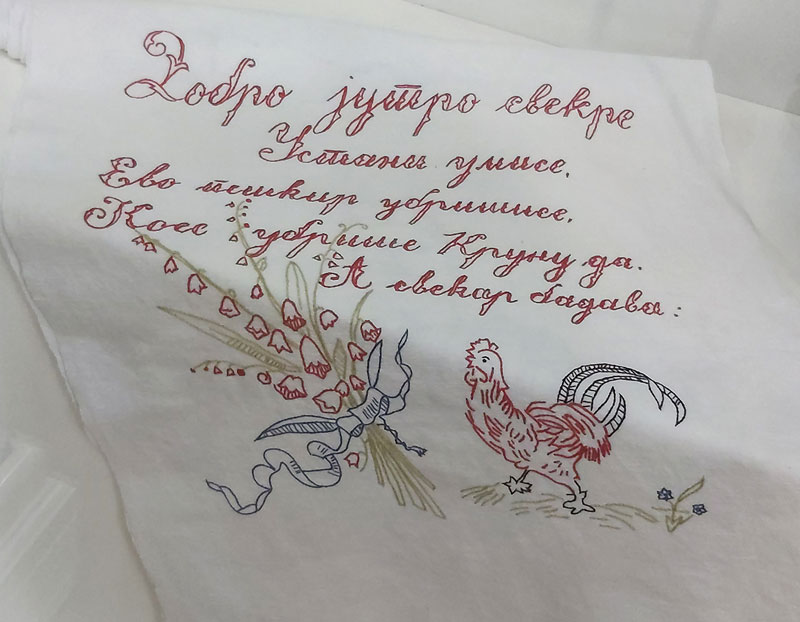 Добро јутро свекре
Устани умисе.
Ево пшкир убришисе.
Косе убрише Круну да.
А свекар бадава: